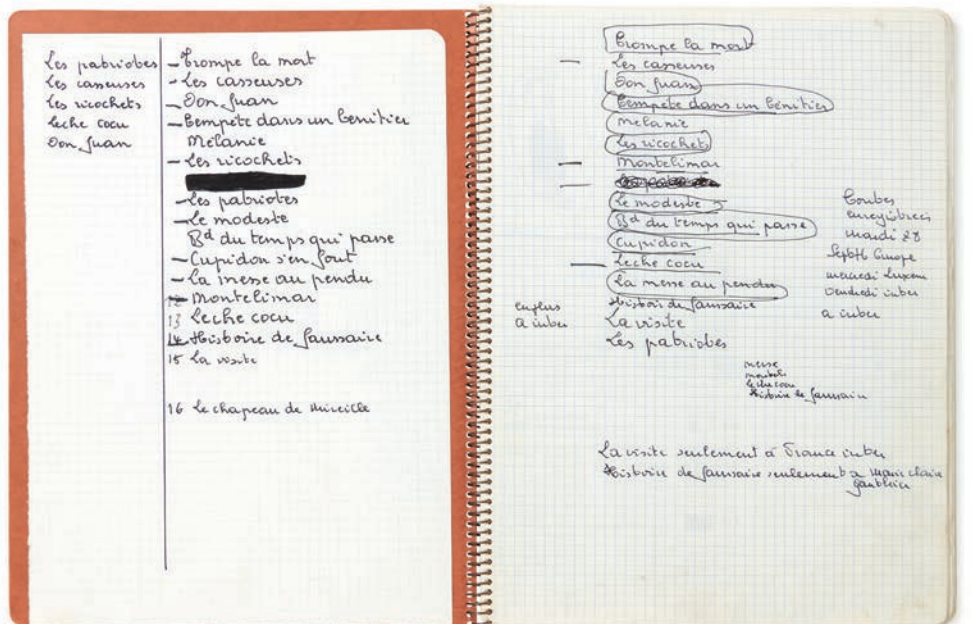 Les patriotes
Les casseuses
Les ricochets
Leche cocu
Don Juan
– Trompe la mort
– Les casseuses
– Don Juan
– Tempete dans un benitier
Melanie
– Les ricochets
– Les patriotes
– Le modeste
Bd du temps qui passe
– Cupidon s'en fout
– La messe au pendu
Montelimar
13 Leche cocu
14 Histoire de faussaire
15 La visite
16 Le chapeau de Mireille
Trompe la mort
– Les casseuses
Don Juan
Tempete dans un benitier
Melanie
Les ricochets
– Montelimar
Le modeste
Bd du temps qui passe
Cupidon
– Leche cocu
La messe au pendu
Histoire de faussaire
La visite
Les patriotes
en plus
a inter
toutes
enregistrees
mardi 28
Europe
mercredi Luxem
vendredi inter
a inter
messe
monteli
leche cocu
Histoire de faussaire
La visite seulement à France inter
Histoire de faussaire seulement a marie claire